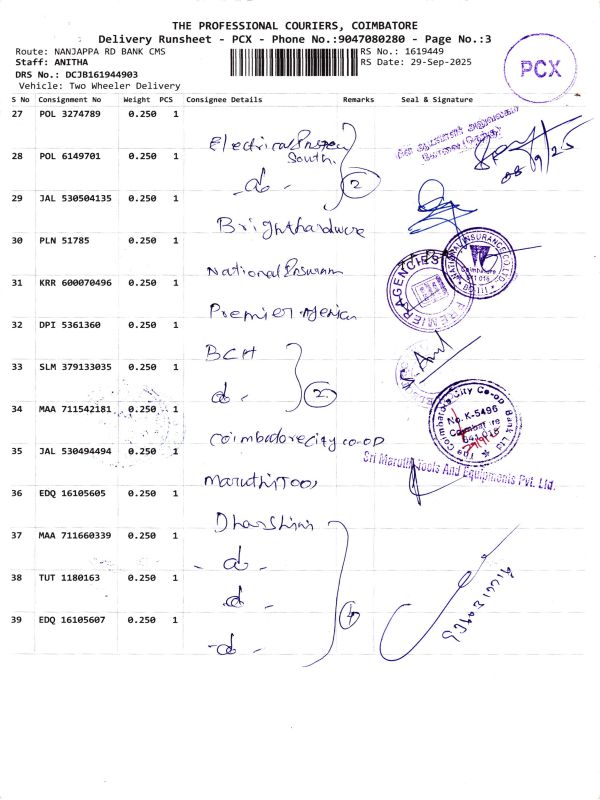 THE PROFESSIONAL COURIERS, COIMBATORE
Delivery Runsheet - PCX - Phone No.:9047080280 - Page No.:3
Route: NANJAPPA RD BANK CMS
RS No.: 1619449
Staff: ANITHA
RS Date: 29-Sep-2025
DRS No.: DCJB161944903
Vehicle: Two Wheeler Delivery
PCX
S No Consignment No Weight PCS Consignee Details Remarks Seal & Signature
27 POL 3274789 0.250 1
Electrical
South.
28 POL 6149701 0.250 1
do - 2
29 JAL 530504135 0.250 1
Bright hardware
30 PLN 51785 0.250 1
National
NATIONAL INSURANCE CO. LTD
Coimbatore
641 018
31 KRR 600070496 0.250 1
Premier Agencies
PREMIER AGENCIES
32 DPI 5361360 0.250 1
BCH
33 SLM 379133035 0.250 1
do - 2
34 MAA 711542181 0.250 1
Coimbatore City co-op
The Coimbatore City Co-op Bank Ltd
No. K-5496
Coimbatore
641 018
35 JAL 530494494 0.250 1
Maruthi Tools
Sri Maruthi Tools And Equipments Pvt. Ltd.
36 EDQ 16105605 0.250 1
Dharshini
37 MAA 711660339 0.250 1
- do -
38 TUT 1180163 0.250 1
do -
4
39 EDQ 16105607 0.250 1
- do -